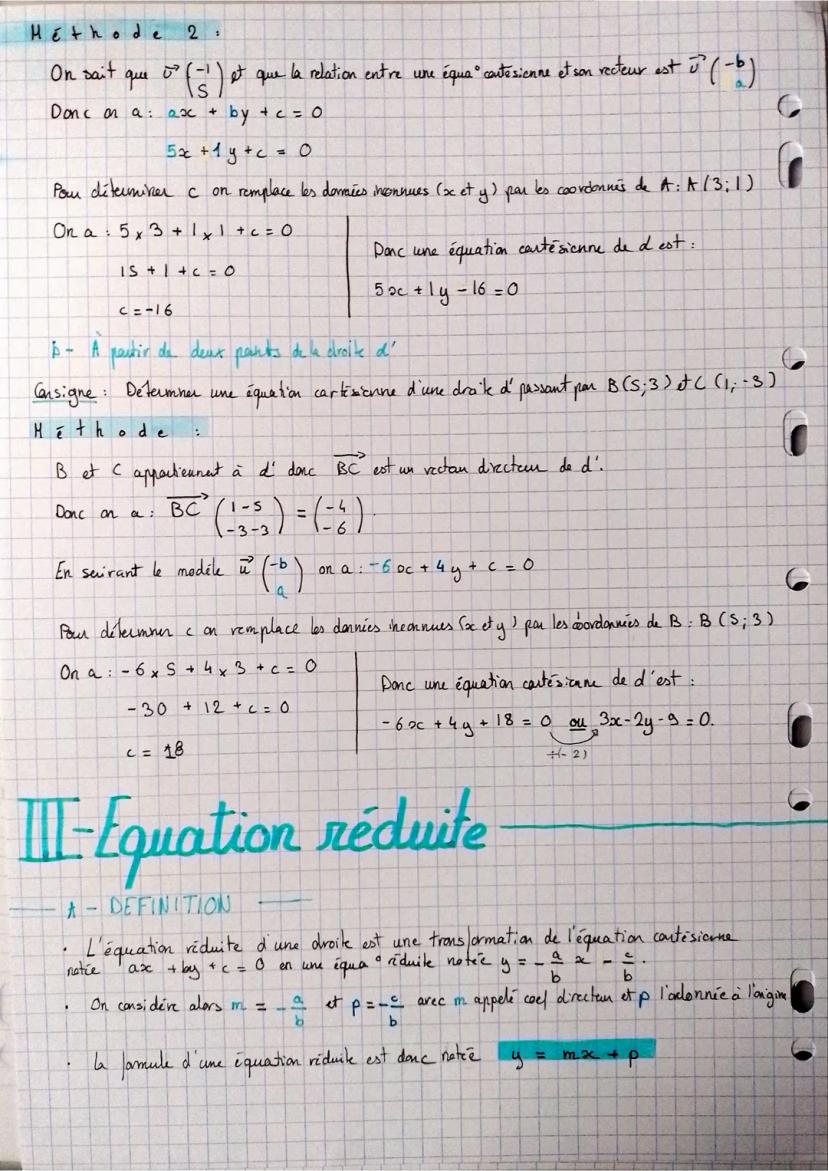 Méthode 2 :
On sait que u⃗ (-1 5) et que la relation entre une équa° cartésienne et son vecteur est u⃗ (-b a)
Donc on a : ax + by + c = 0
5x + 1y + c = 0
Pour déterminer c on remplace les données inconnues (x et y) par les coordonnés de A : A(3;1)
On a : 5 x 3 + 1 x 1 + c = 0
15 + 1 + c = 0
c = -16
Donc une équation cartésienne de d est :
5x + 1y - 16 = 0
B - À partir de deux points de la droite d'
Consigne : Déterminer une équation cartésienne d'une droite d' passant par B(5;3) et C (1;-3)
Méthode :
B et C appartiennent à d' donc BC⃗ est un vecteur directeur de d'.
Donc on a : BC⃗ (1-5 -3-3) = (-4 -6).
En suivant le modèle u⃗ (-b a) on a : -6x + 4y + c = 0
Pour déterminer c on remplace les données inconnues (x et y) par les coordonnées de B : B (5;3)
On a : -6 x 5 + 4 x 3 + c = 0
-30 + 12 + c = 0
c = 18
Donc une équation cartésienne de d' est :
-6x + 4y + 18 = 0 ou 3x - 2y - 9 = 0.
÷(-2)
III - Equation réduite
A - DEFINITION
· L'équation réduite d'une droite est une transformation de l'équation cartésienne
notée ax + by + c = 0 en une équa° réduite notée y = -a/b x - c/b.
· On considère alors m = -a/b et p = -c/b avec m appelé coef directeur et p l'ordonnée à l'origine
· La formule d'une équation réduite est donc notée y = mx + p